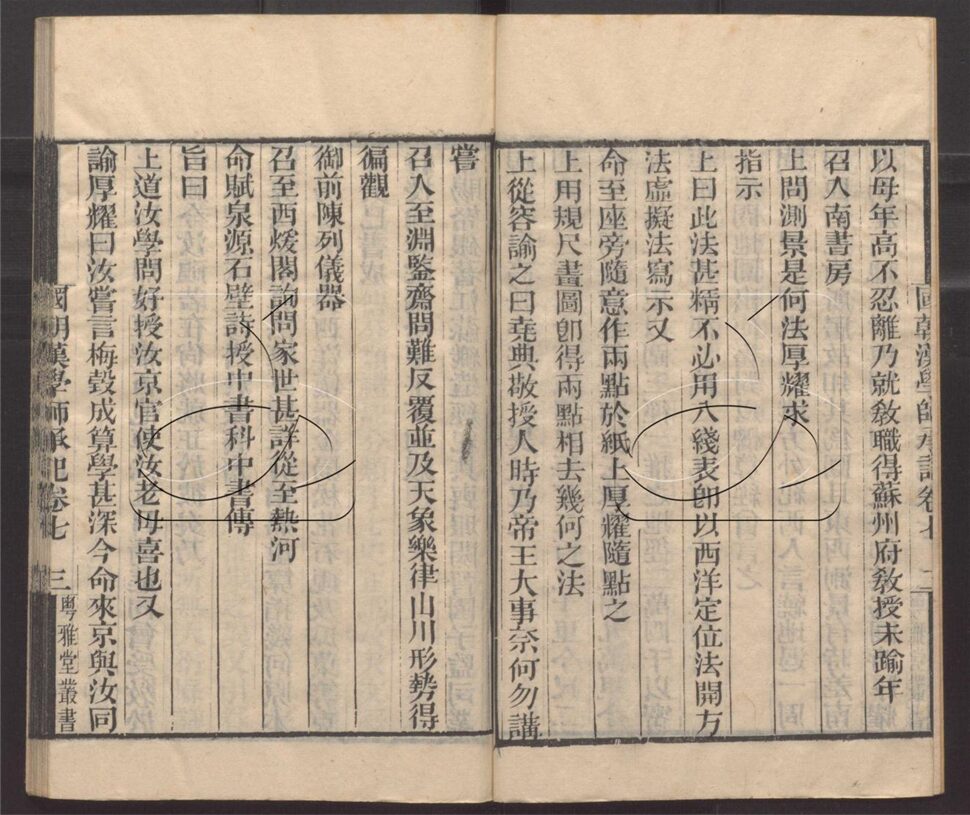 國朝漢學師承記卷七 二
以母年高不忍離乃就敎職得蘇州府敎授未踰年
召入南書房
上問測景是何法厚耀求
指示
上曰此法甚精不必用八綫表卽以西洋定位法開方
法虛擬法寫示又
命至座旁隨意作兩點於紙上厚耀隨點之
上用規尺畫圖卽得兩點相去幾何之法
上從容諭之曰堯典敬授人時乃帝王大事奈何勿講
嘗
召入至淵鑒齋問難反覆並及天象樂律山川形勢得
徧觀
御前陳列儀器
召至西煖閣詢問家世甚詳從至熱河
命賦泉源石壁詩授中書科中書傳
旨曰
上道汝學問好授汝京官使汝老母喜也又
諭厚耀曰汝嘗言梅瑴成算學甚深今命來京與汝同
國朝漢學師承記卷七 三 粤雅堂叢書